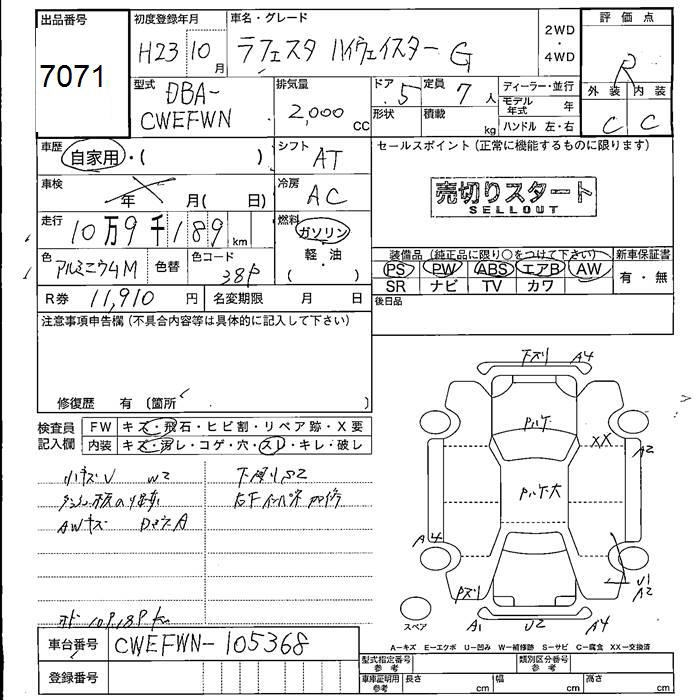 出品番号
7071
初度登録年月
H23 10 月
車名・グレード
ラフェスタ ハイウェイスター G
2WD
・
4WD
評価点
R
外装 内装
C C
型式
DBA-
CWEFWN
排気量
2,000 cc
ドア 5
定員 7 人
形状
積載 kg
ディーラー・並行
モデル年式 年
ハンドル 左・右
車歴
自家用・( )
シフト AT
セールスポイント (正常に機能するものに限ります)
車検
年 月( 日)
冷房 AC
売切りスタート
SELLOUT
走行
10万9千189 km
燃料
ガソリン
軽・油
( )
色 アルミニウムM
色替
色コード 38P
装備品 (純正品に限り○をつけて下さい)
新車保証書
PS PW ABS エアB AW
有・無
SR ナビ TV カワ
R券 11,910 円
名変期限 月 日
後日品
注意事項申告欄 (不具合内容等は具体的に記入して下さい)
修復歴 有 (箇所 )
検査員
記入欄
FW キズ・飛石・ヒビ割・リペア跡・X要
内装 キズ・汚レ・コゲ・穴・スレ・キレ・破レ
小キズU W2
AWキズ
下廻りS2
下ズリ A4
XX
A2
A4
U1
A2
A1 U2 A4
スペア
A-キズ E-エクボ U-凹み W-補修跡 S-サビ C-腐食 XX-交換済
車台番号 CWEFWN-105368
登録番号
型式指定番号
参考
類別区分番号
参考
車庫証明用
参考
長さ cm
幅 cm
高さ cm